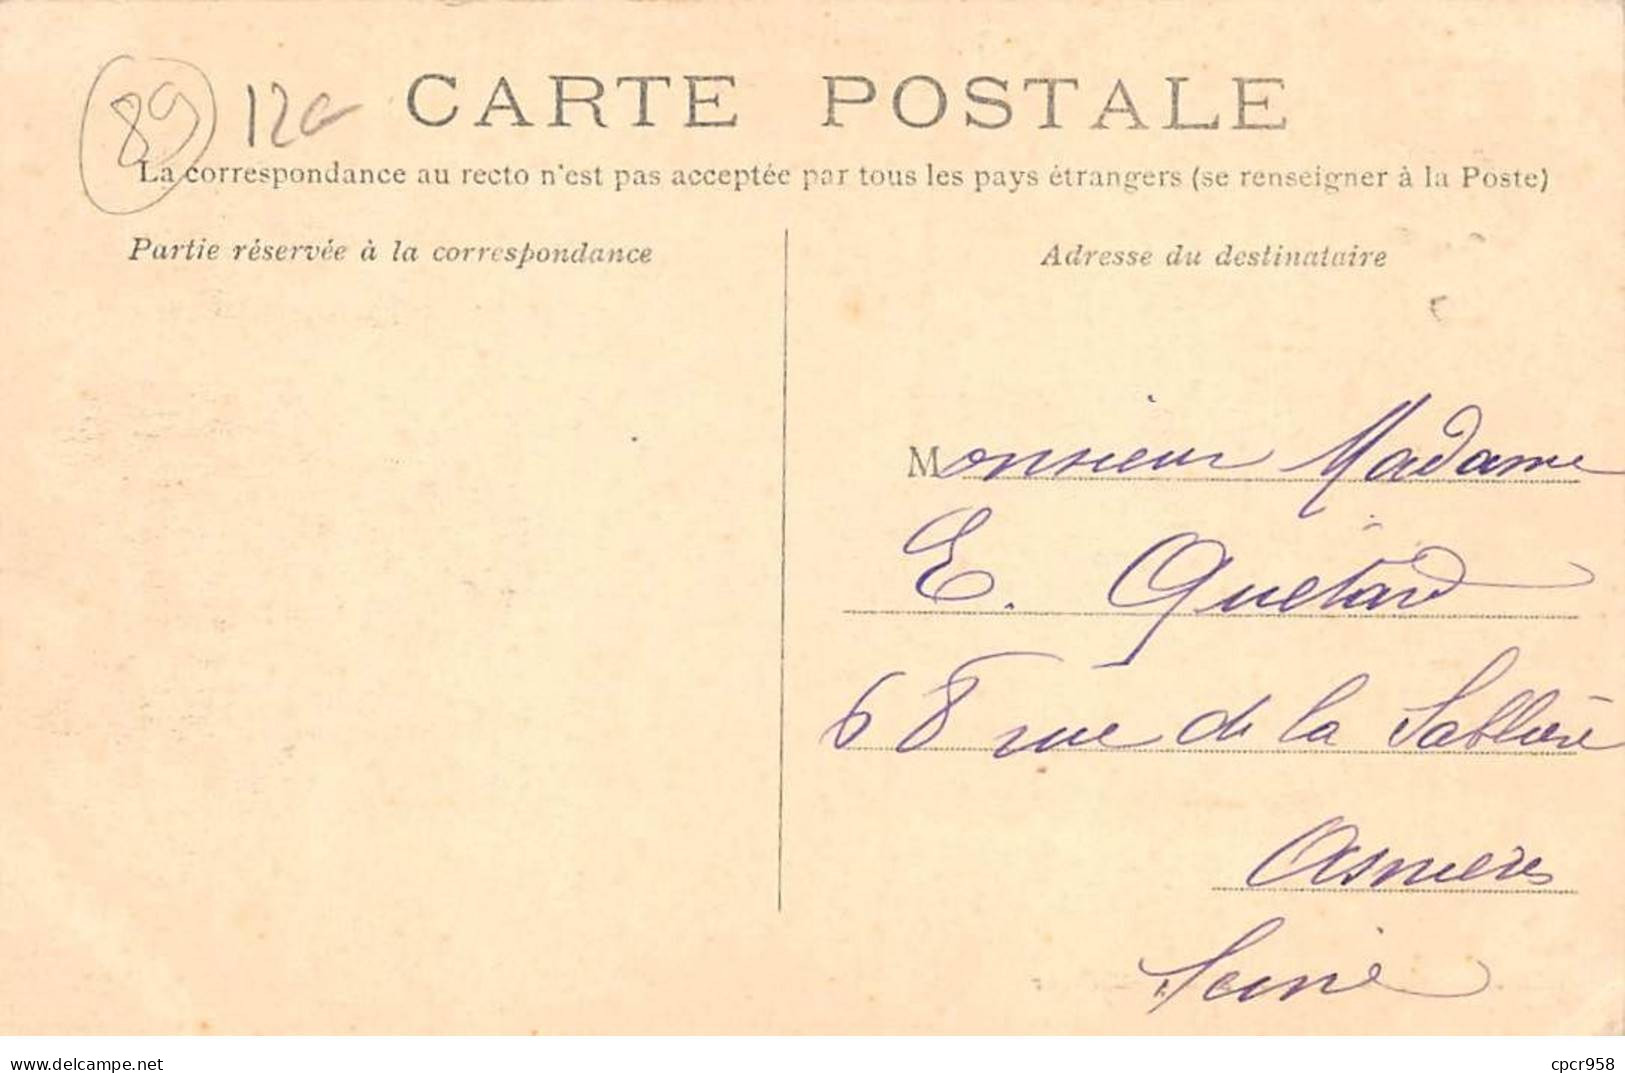 89 12
CARTE POSTALE
La correspondance au recto n'est pas acceptée par tous les pays étrangers (se renseigner à la Poste)
Partie réservée à la correspondance
Adresse du destinataire
Monsieur Madame
E. Quetard
68 rue de la Sablière
Asnières
Seine
www.delcampe.net
cpcr958